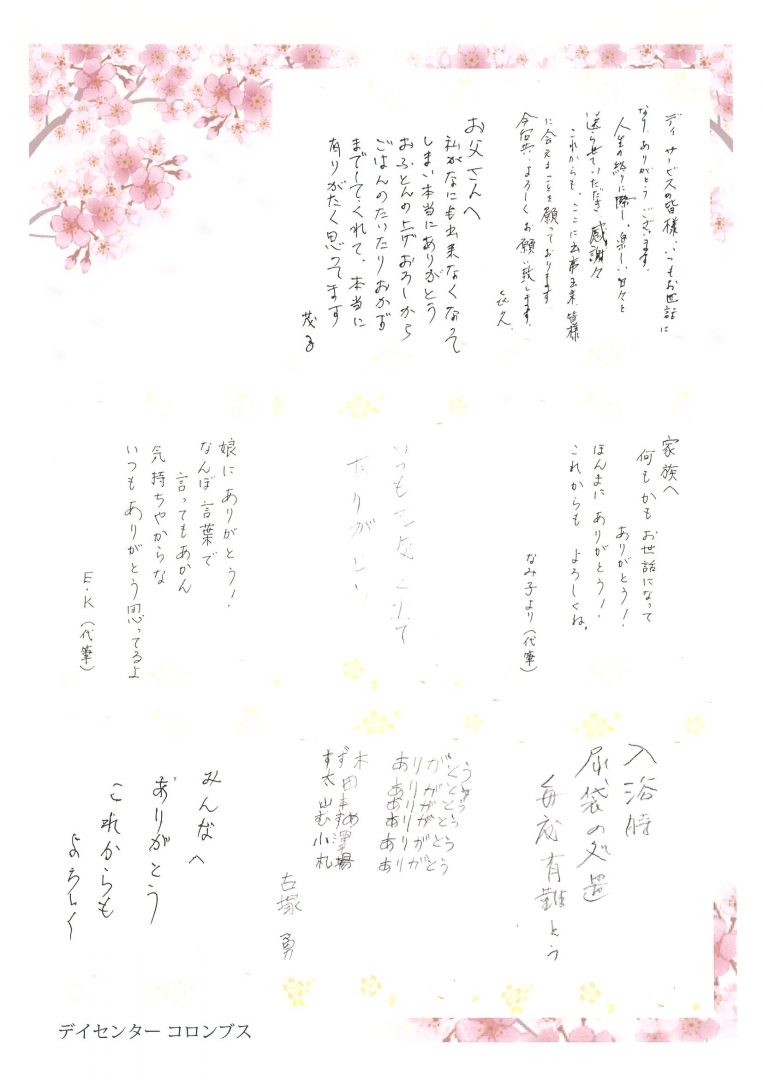 デイサービスの皆様、いつもお世話に
なり、ありがとうございます。
人生の終りに際し、楽しい日々と
送らせていただき感謝々
これからも、ここに出事出来、皆様
に合えることを願っております
今回共、よろしくお願い致します。
お父さんへ
私がなにも出来なくなって
しまい本当にありがとう
おふとんの上げおろしから
ごはんのたいたりおかず
までしてくれて、本当に
有りがたく思ってます
茂子
家族へ
何もかもお世話になって
ありがとう!
ほんまにありがとう!
これからも よろしくね。
なみ子より(代筆)
いつも元気くれて
ありがとう
娘にありがとう!
なんぼ言葉で
言ってもあかん
気持ちやからな
いつもありがとう思ってるよ
E.K(代筆)
入浴時
尿袋の処置
毎度有難とう
ありがとう
ありがとう
ありがとう
古塚 勇
みんなへ
ありがとう
これからも
よろしく
デイセンター コロンブス